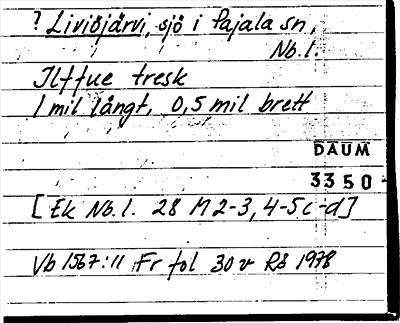 ? Liviöjärvi, sjö i Pajala sn,
Nb.l.
Ilffue tresk
1 mil långt, 0,5 mil brett
DAUM
3350
[Ek Nb.l. 28 M2-3, 4-5c-d]
Vb 1567:11 Fr fol 30v RÅ 1978